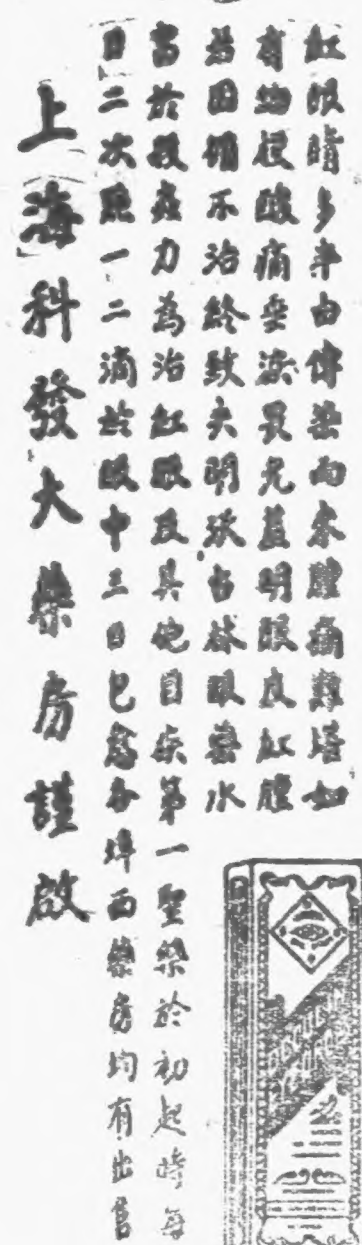 紅眼睛多半由傳染而來腫痛難堪如
有物侵酸痛垂淚畏光羞明眼皮紅腫
若因循不治終致失明沃古林眼藥水
富於殺菌力為治紅眼及其他目疾第一聖藥於初起時每
日二次點一二滴於眼中三日已愈各埠西藥房均有出售
上海科發大藥房謹啟